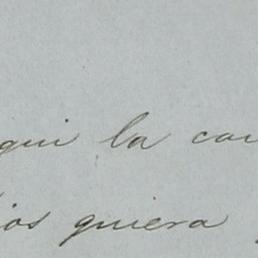 qui la car
ios quiera